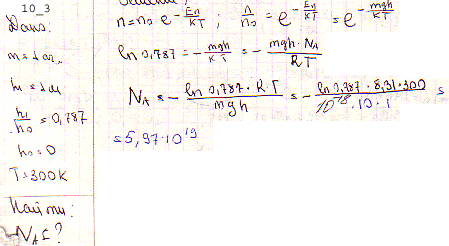 10_3
Дано:
h = 1 м
h₁/h₀ = 0,787
h₀ = 0
T = 300K
Найти:
N_A = ?
n = n₀ e^(-Eп/KT) ; n/n₀ = e^(-Eп/KT) = e^(-mgh/KT)
ln 0,787 = - mgh/KT = - mgh·N_A/RT
N_A = - ln 0,787 · R·T/mgh = - ln 0,787 · 8,31·300/10^-18·10·1 =
= 5,97·10^19